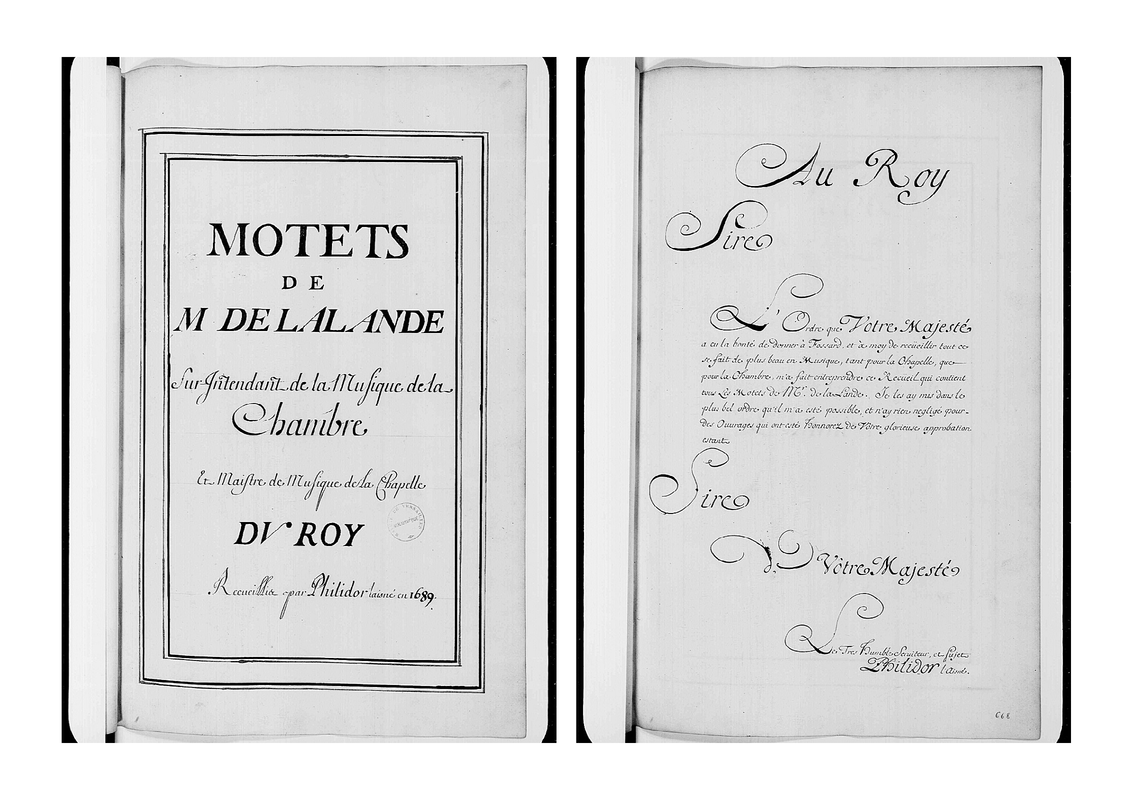 MOTETS
DE
M DE LALANDE
Sur-Jntendant de la Musique de la
Chambre
Et Maistre de Musique de la Chapelle
DV ROY
Recueillie par Philidor laisné en 1689.
Au Roy
Sire
L'Ordre que Votre Majesté
a eu la bonté de donner à Fossard, et à moy de recüeillir tout ce
se fait de plus beau en Musique, tant pour la Chapelle, que
pour la Chambre, m'a fait entreprendre ce Recueil qui contient
tous Les Motets de Mr. de la Lande. Je les ay mis dans le
plus bel ordre qu'il m'a esté possible, et n'ay rien negligé pour
des Ouvrages qui ont esté honnorez de Vôtre glorieuse approbation
estant
Sire
de Vôtre Majesté
Le Tres humble Serviteur, et sujet
Philidor laisné.